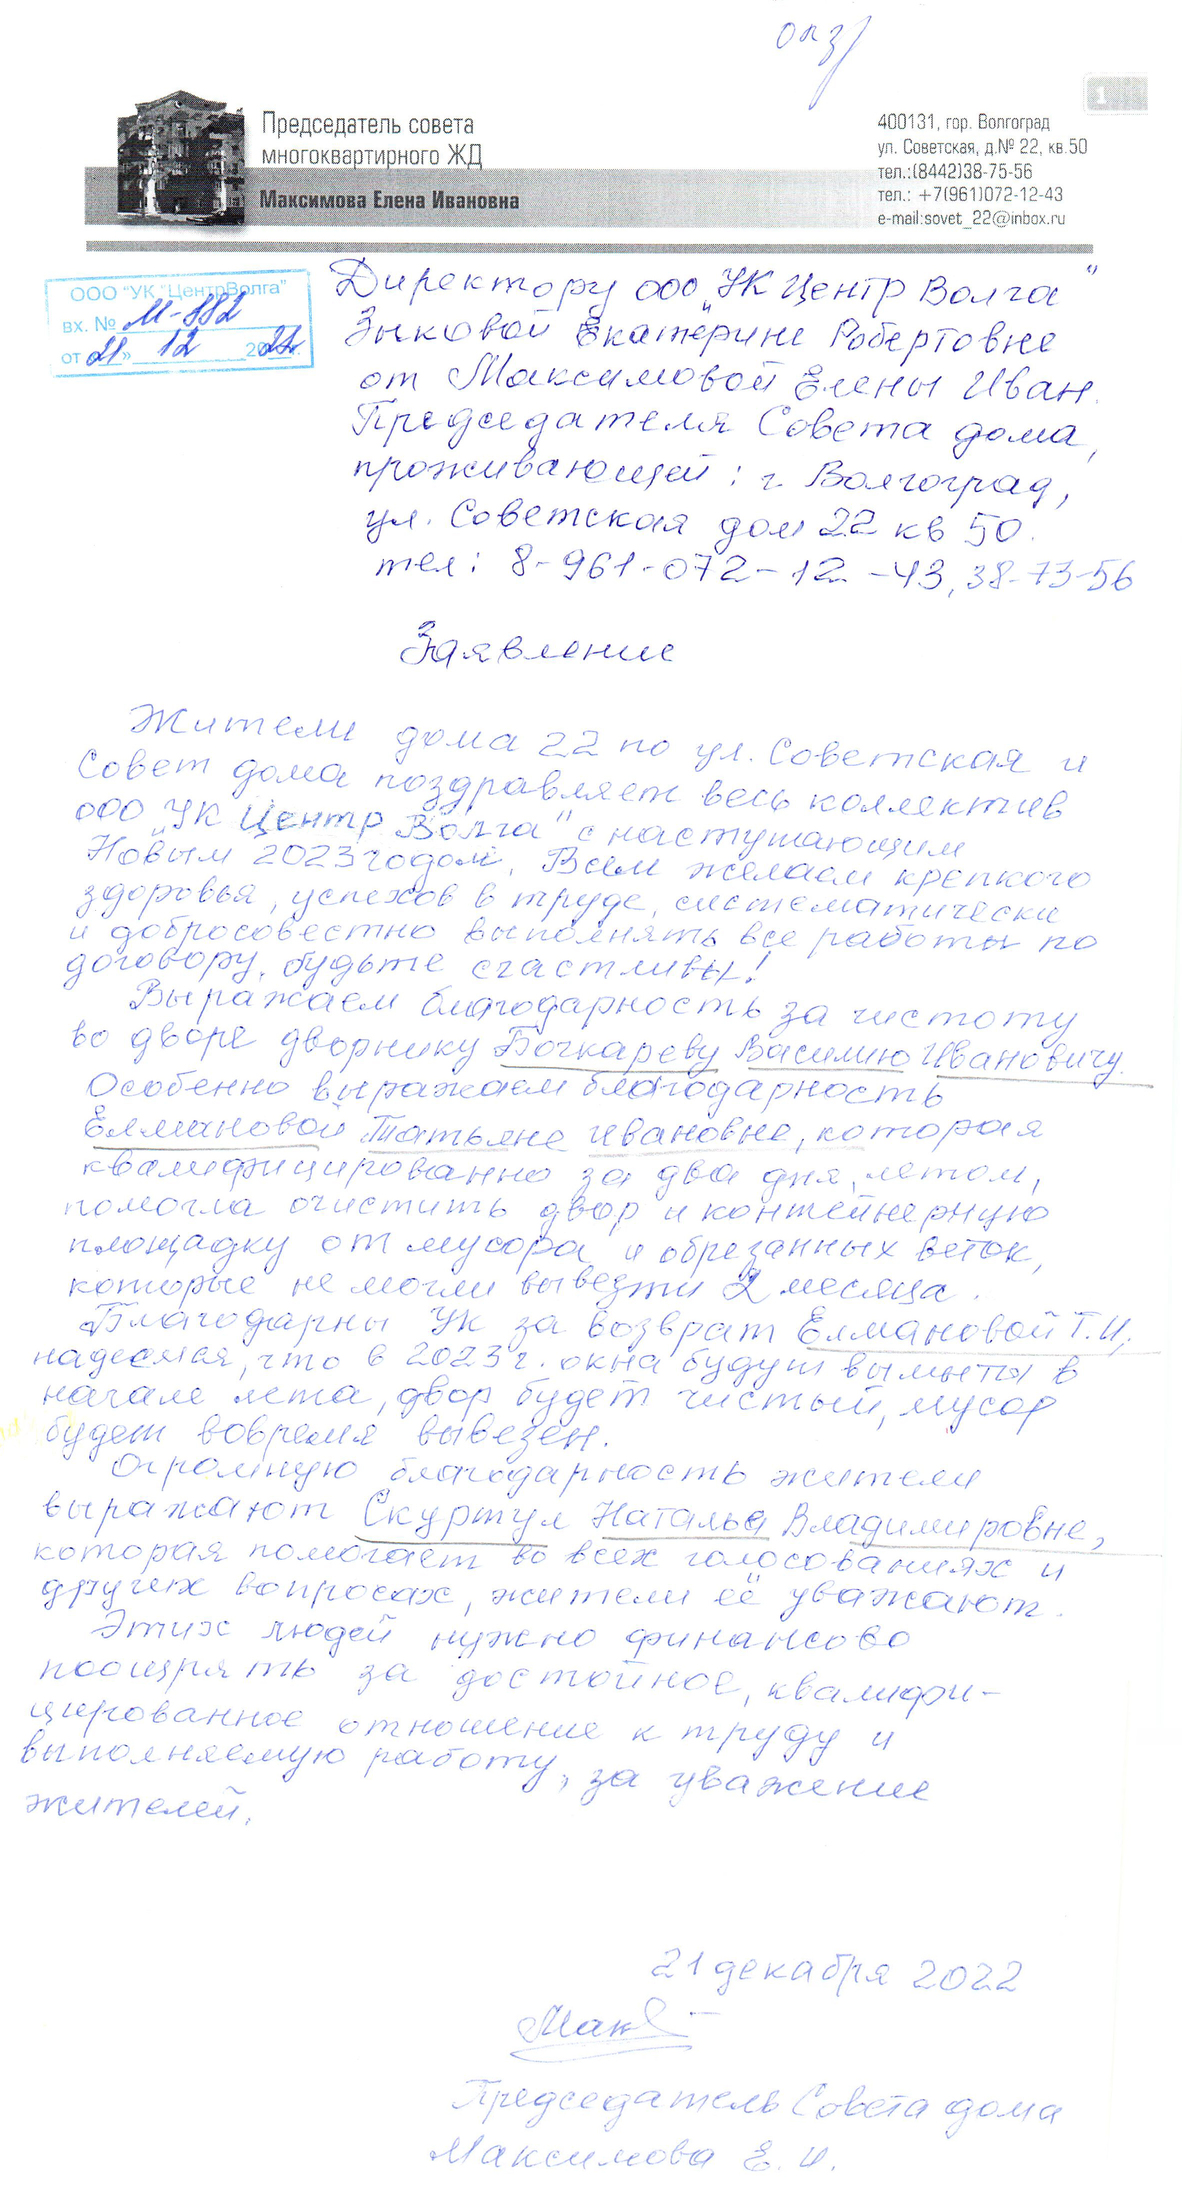 опз
1
Председатель совета
многоквартирного ЖД
Максимова Елена Ивановна
400131, гор. Волгоград
ул. Советская, д.№ 22, кв.50
тел.:(8442)38-75-56
тел.: +7(961)072-12-43
e-mail:sovet_22@inbox.ru
ООО "УК "ЦентрВолга"
вх. № М-882
от 21» 12 2022г.
Директору ООО „УК Центр Волга"
Зыковой Екатерине Робертовне
от Максимовой Елены Иван.
Председателя Совета дома,
проживающей: г. Волгоград,
ул. Советская дом 22 кв 50.
тел: 8-961-072-12-43, 38-73-56
Заявление
Жители дома 22 по ул. Советская и
Совет дома поздравляет весь коллектив
ООО „УК Центр Волга" с наступающим
Новым 2023 годом. Всем желаем крепкого
здоровья, успехов в труде, систематически
и добросовестно выполнять все работы по
договору, будьте счастливы!
Выражаем благодарность за чистоту
во дворе дворнику Бочкареву Василию Ивановичу.
Особенно выражаем благодарность
Елмановой Татьяне Ивановне, которая
квалифицированно за два дня, летом,
помогла очистить двор и контейнерную
площадку от мусора и обрезанных веток,
которые не могли вывезти 2 месяца.
Благодарны УК за возврат Елмановой Т.И,
надеемся, что в 2023 г. окна будут вымыты в
начале лета, двор будет чистый, мусор
будет вовремя вывезен.
Огромную благодарность жители
выражают Скуртул Наталье Владимировне,
которая помогает во всех голосованиях и
других вопросах, жители её уважают.
Этих людей нужно финансово
поощрять за достойное, квалифи-
цированное отношение к труду и
выполняемую работу, за уважение
жителей.
21 декабря 2022
Мак
Председатель Совета дома
Максимова Е. И.